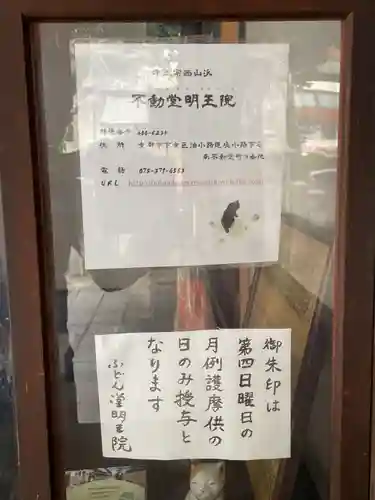 浄土宗西山派
不動堂明王院
郵便番号 600-8234
住所 京都市下京区油小路塩小路下る
南不動堂町7番地
電話 075-371-6553
URL
御朱印は
第四日曜日の
月例護摩供の
日のみ授与と
なります
ふどん堂明王院